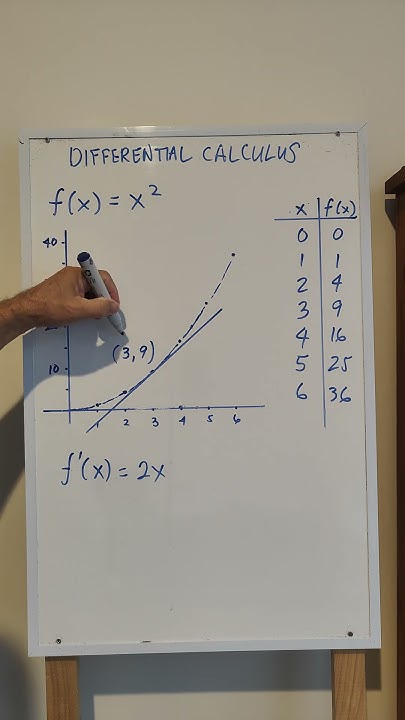 DIFFERENTIAL CALCULUS
f(x) = x²
x f(x)
0 0
1 1
2 4
3 9
4 16
5 25
6 36
40
(3,9)
10
1 2 3 4 5 6
f'(x) = 2x